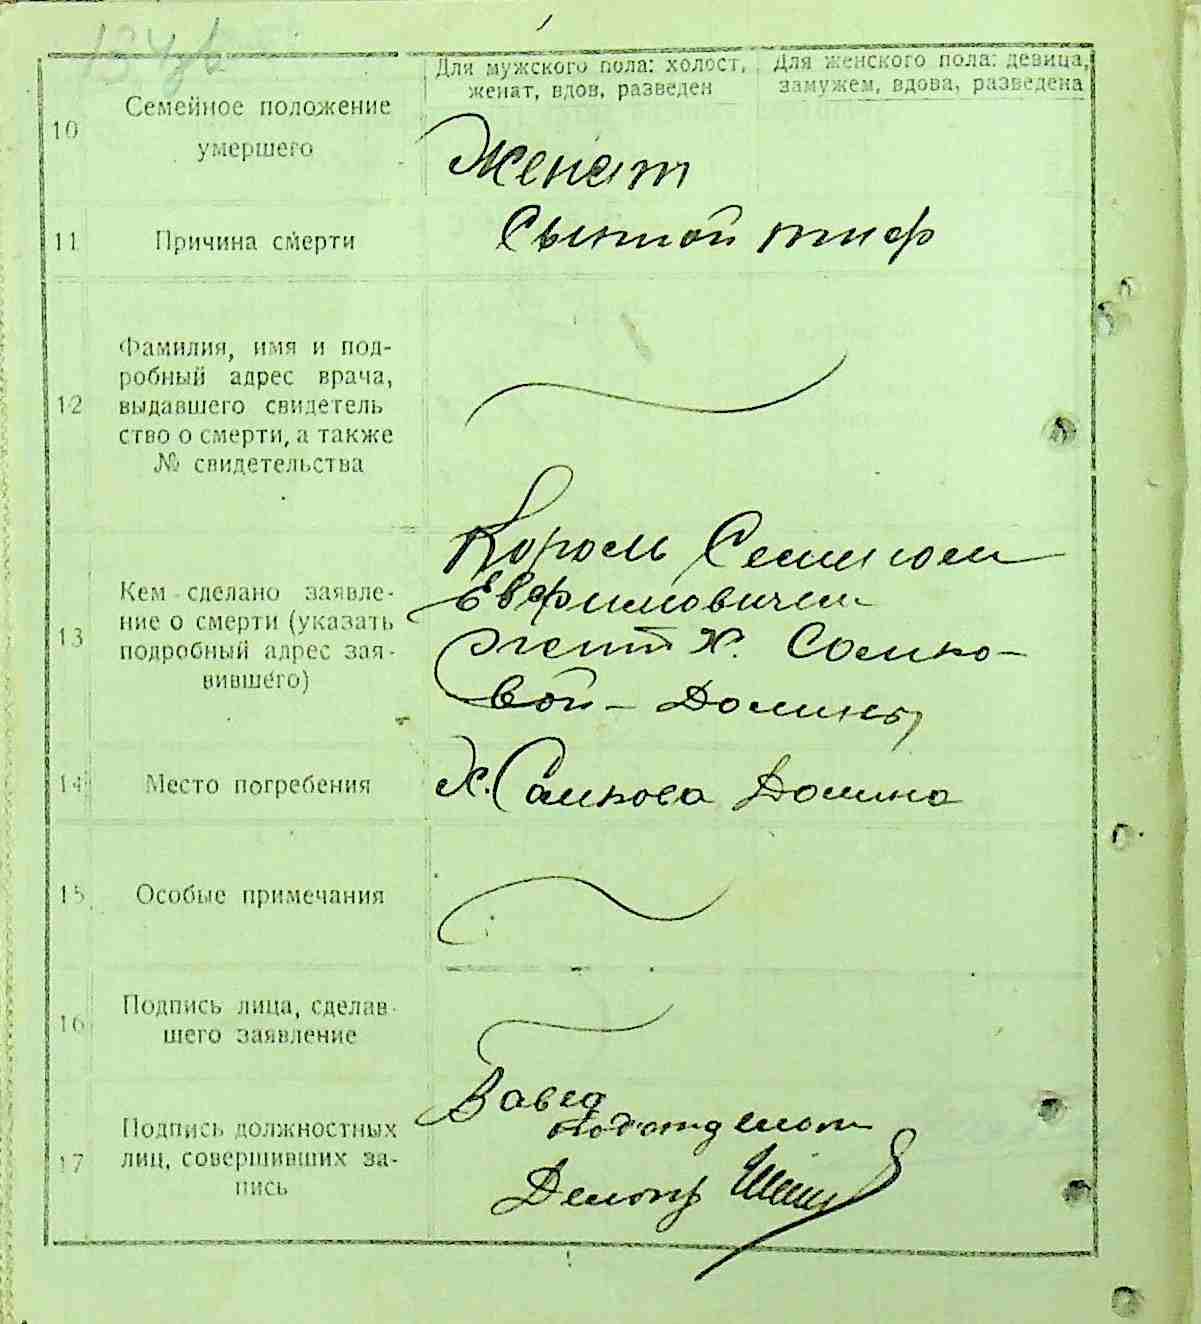 Для мужского пола: холост,
женат, вдов, разведен
Для женского пола: девица,
замужем, вдова, разведена
10
Семейное положение
умершего
Женат
11
Причина смерти
Сыпной тиф
12
Фамилия, имя и под-
робный адрес врача,
выдавшего свидетель
ство о смерти, а также
№ свидетельства
13
Кем сделано заявле-
ние о смерти (указать
подробный адрес зая-
вившего)
Король Семеном
Евфимовичем
жит Х. Сомко-
вой-Долины
14
Место погребения
Х. Самкова Долина
15
Особые примечания
16
Подпись лица, сделав-
шего заявление
17
Подпись должностных
лиц, совершивших за-
пись
Завед
Делопр